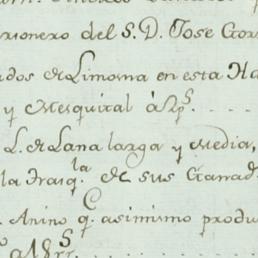 rsonero del S. D. Jose Gor
ados de Limosna en esta Ha
y Mesquital à Rps. . . . .
L. de Lana larga y Media,
la trasq.la de sus Ganad
. Anino q. asimismo produ
o a 18 rrs